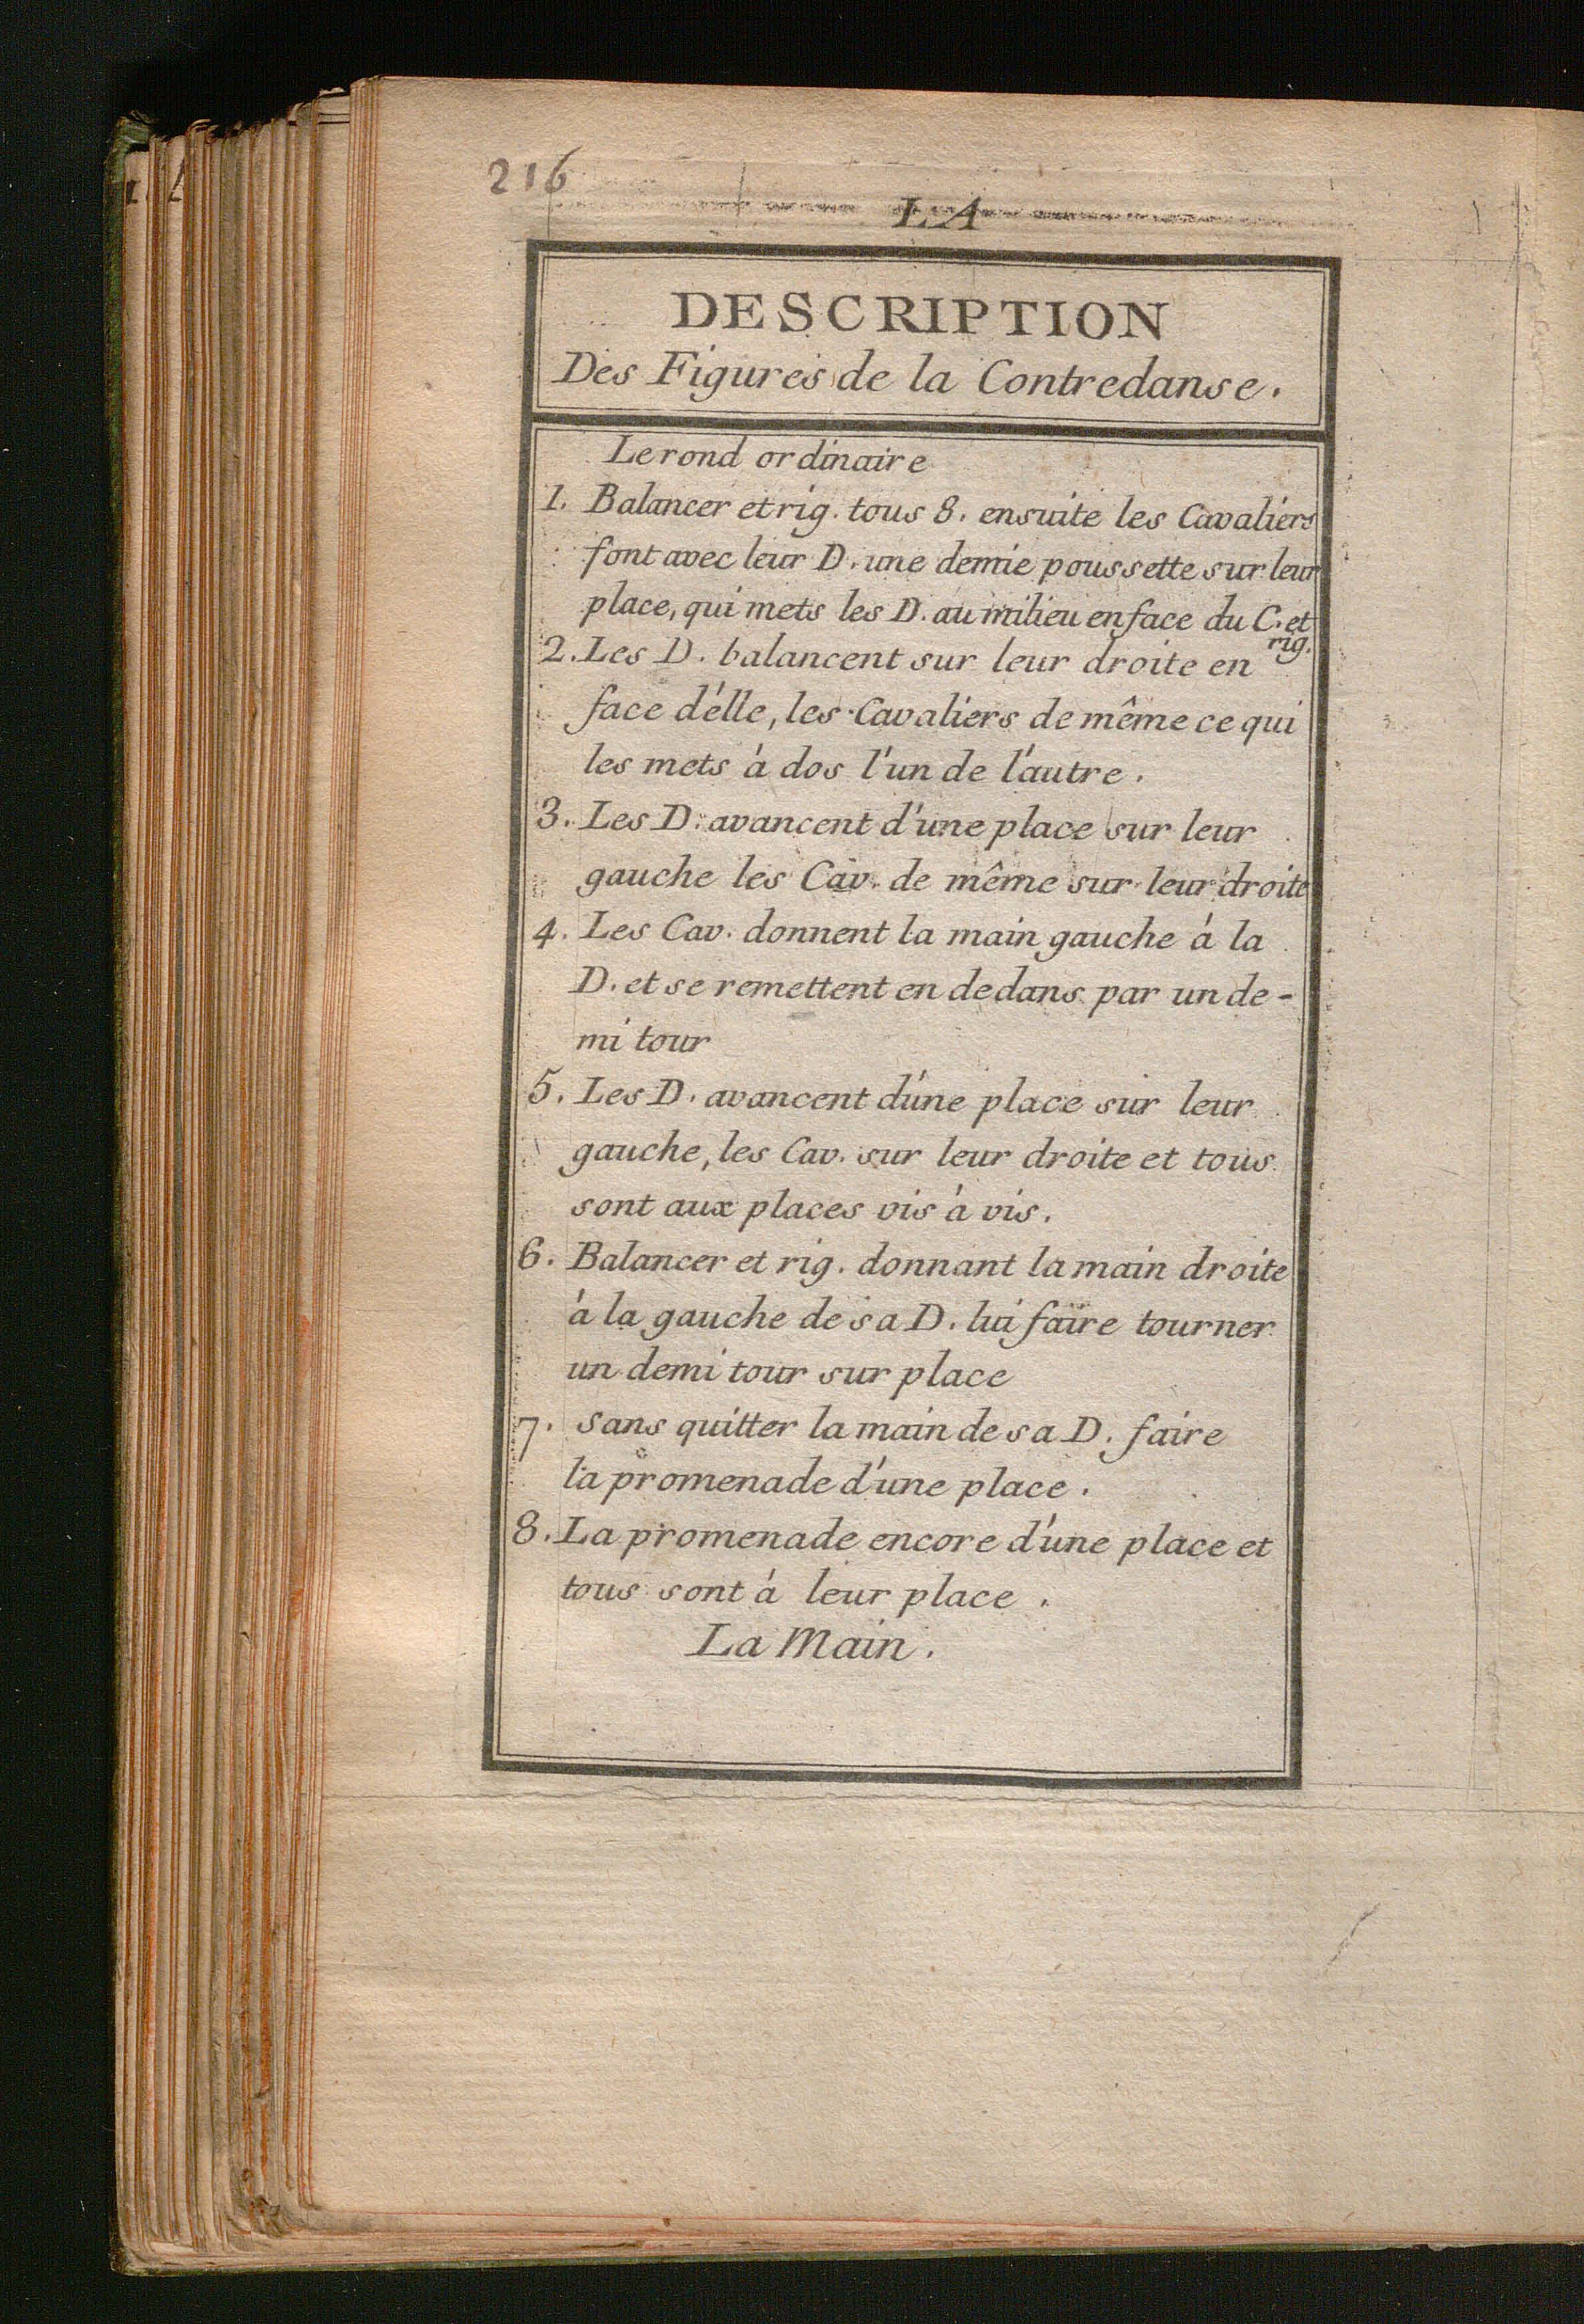 216
LA
DESCRIPTION
Des Figures de la Contredanse.
Le rond ordinaire
1. Balancer et rig. tous 8. ensuite les Cavaliers
font avec leur D. une demie poussette sur leur
place, qui mets les D. au milieu en face du C. et
rig.
2. Les D. balancent sur leur droite en
face d'élle, les Cavaliers de même ce qui
les mets à dos l'un de l'autre.
3. Les D. avancent d'une place sur leur
gauche les Cav. de même sur leur droite
4. Les Cav. donnent la main gauche à la
D. et se remettent en dedans par un de-
mi tour
5. Les D. avancent d'une place sur leur
gauche, les Cav. sur leur droite et tous
sont aux places vis à vis.
6. Balancer et rig. donnant la main droite
à la gauche de sa D. lui faire tourner
un demi tour sur place
7. sans quitter la main de sa D. faire
la promenade d'une place.
8. La promenade encore d'une place et
tous sont à leur place.
La Main.